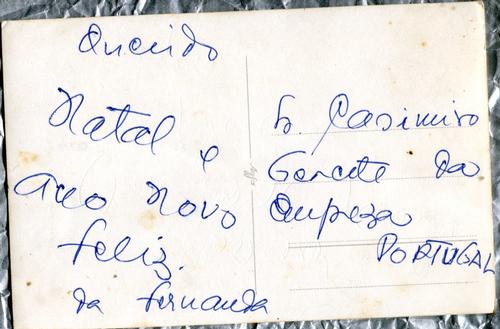 Querido
Natal e
Ano Novo
feliz.
da Fernanda
Sr. Casimiro
Gerente da
Empreza
PORTUGAL